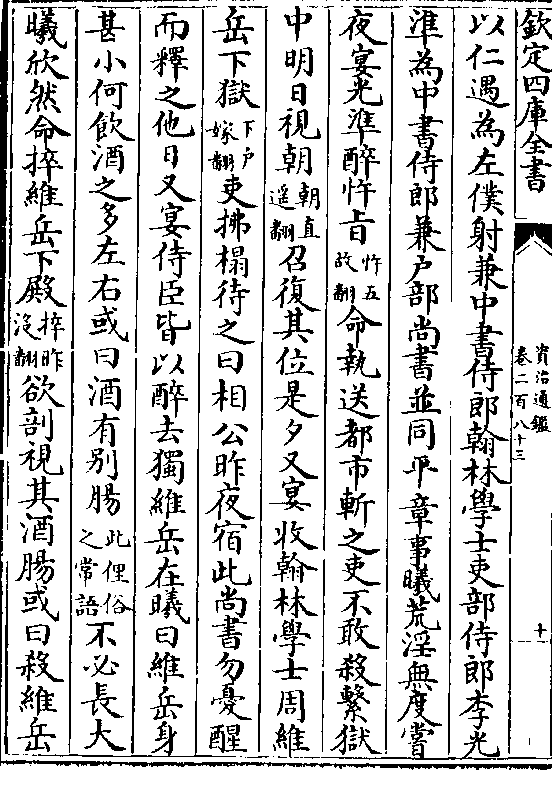 欽定四庫全書
資治通鑑
卷二百八十三
十
以仁遇為左僕射兼中書侍郎翰林學士吏部侍郎李光
準為中書侍郎兼戶部尚書並同平章事曦荒淫無度嘗
夜宴光準醉忤旨忤五故翻命執送都市斬之吏不敢殺繫獄
中明日視朝朝直遥翻召復其位是夕又宴收翰林學士周維
岳下獄下户嫁翻吏拂榻待之曰相公昨夜宿此尚書勿憂醒
而釋之他日又宴侍臣皆以醉去獨維岳在曦曰維岳身
甚小何飲酒之多左右或曰酒有别腸此俚俗之常語不必長大
曦欣然命捽維岳下殿捽昨沒翻欲剖視其酒腸或曰殺維岳